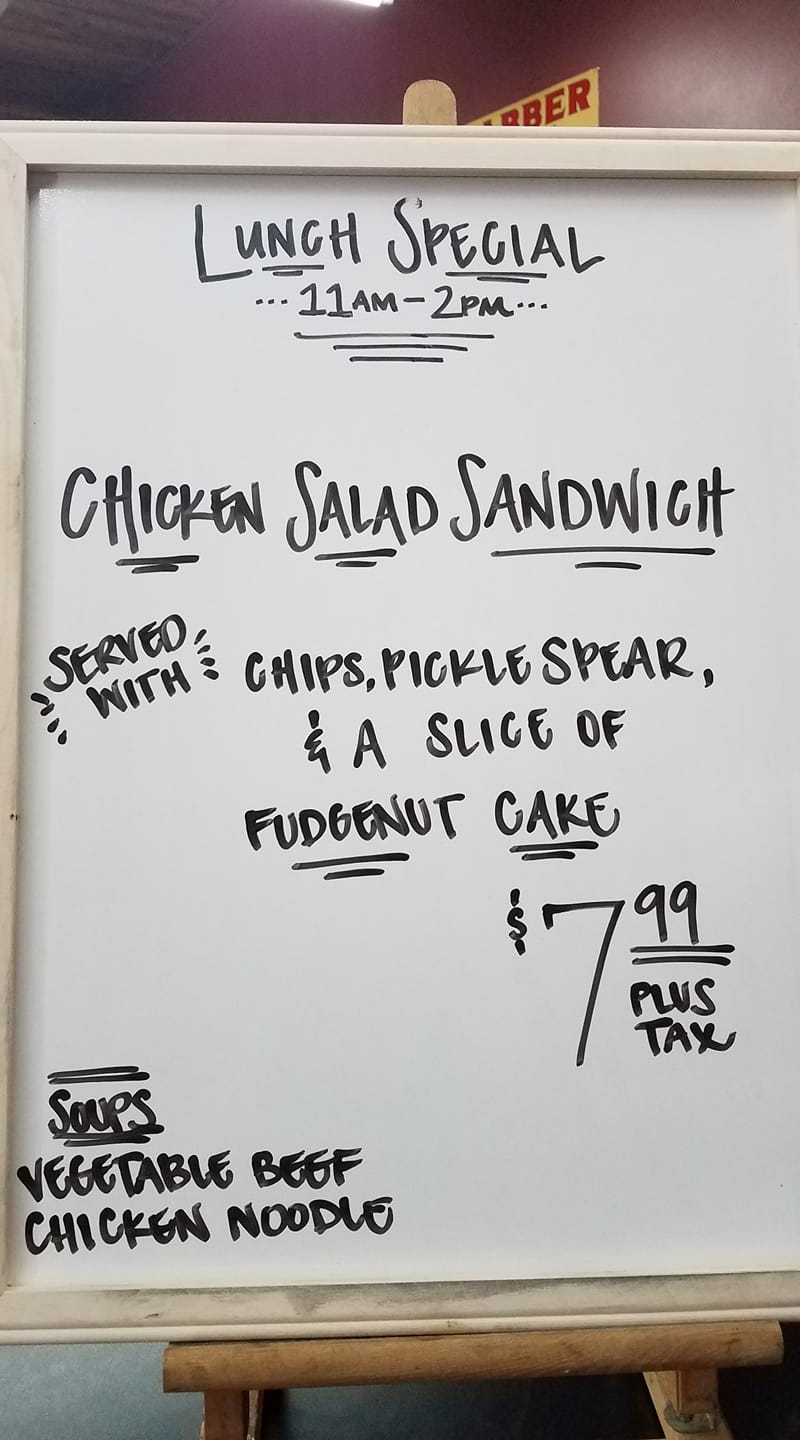 BBER
LUNCH SPECIAL
...11AM-2PM...
CHICKEN SALAD SANDWICH
SERVED
WITH
CHIPS, PICKLE SPEAR,
& A SLICE OF
FUDGENUT CAKE
$7 99
PLUS
TAX
SOUPS
VEGETABLE BEEF
CHICKEN NOODLE